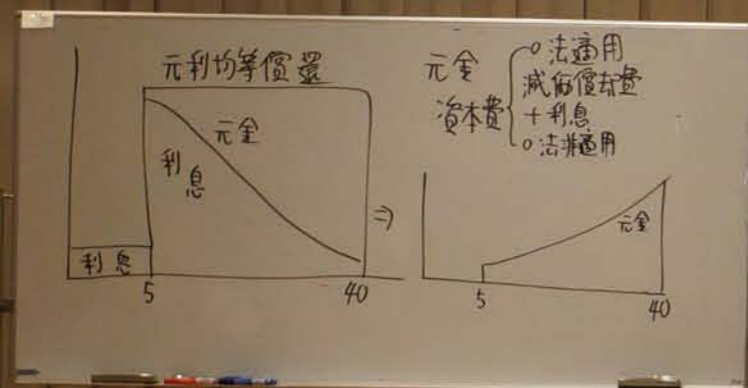 元利均等償還
元金
利息
利息
5
40
⇒
元金
資本費
○法適用
減価償却費
+利息
○法非適用
元金
5
40